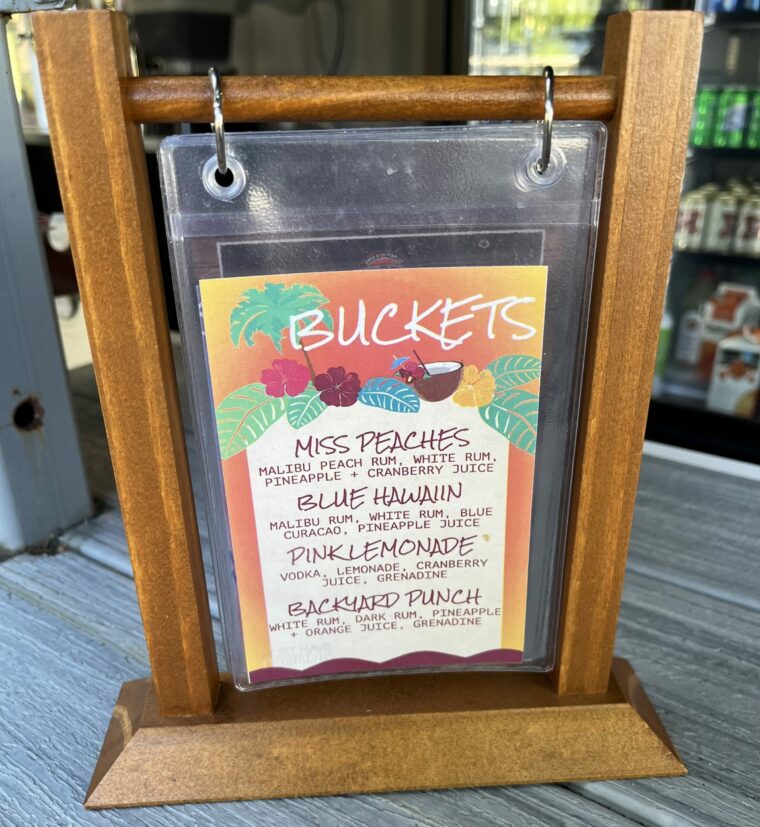 BUCKETS
MISS PEACHES
MALIBU PEACH RUM, WHITE RUM,
PINEAPPLE + CRANBERRY JUICE
BLUE HAWAIIN
MALIBU RUM, WHITE RUM, BLUE
CURACAO, PINEAPPLE JUICE
PINK LEMONADE
VODKA, LEMONADE, CRANBERRY
JUICE, GRENADINE
BACKYARD PUNCH
WHITE RUM, DARK RUM, PINEAPPLE
+ ORANGE JUICE, GRENADINE